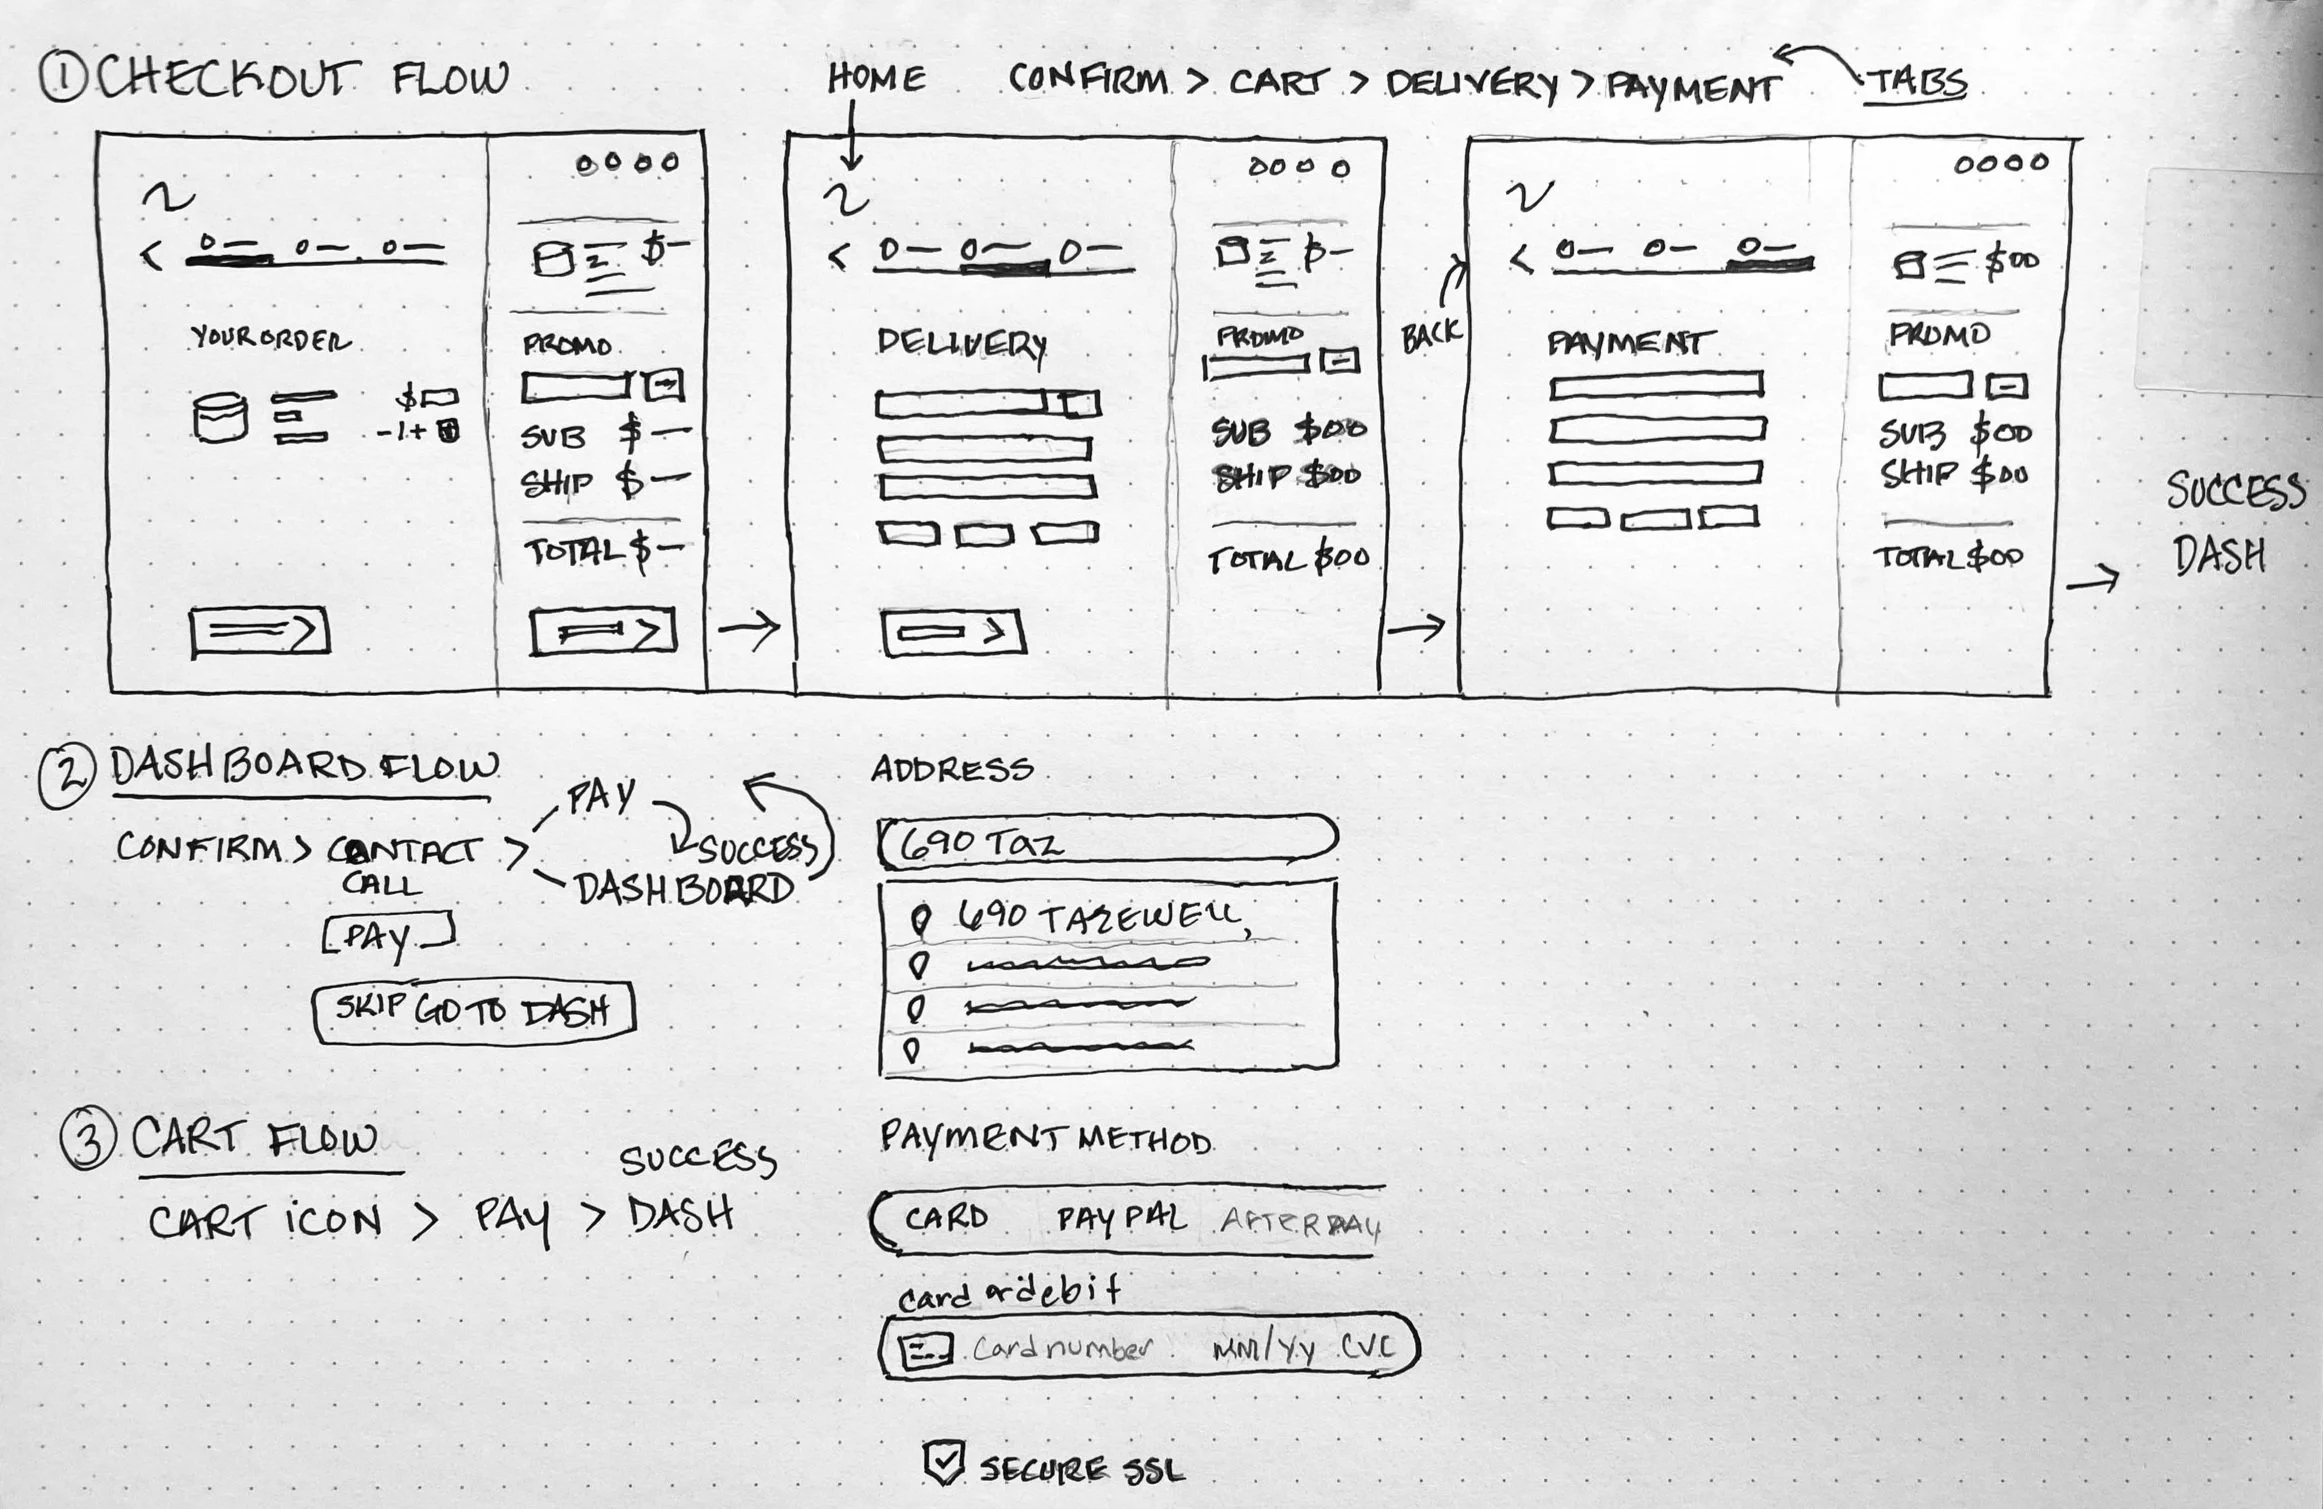 ① CHECKOUT FLOW
HOME
CONFIRM > CART > DELIVERY > PAYMENT
TABS
YOUR ORDER
$
-1+
$-
PROMO
SUB $-
SHIP $-
TOTAL $-
DELIVERY
$-
PROMO
SUB $00
SHIP $00
TOTAL $00
BACK
PAYMENT
$00
PROMO
SUB $00
SHIP $00
TOTAL $00
SUCCESS
DASH
② DASHBOARD FLOW
CONFIRM > CONTACT >
CALL
PAY
SUCCESS
DASHBOARD
PAY
SKIP GO TO DASH
ADDRESS
690 Taz
690 TAZEWELL,
③ CART FLOW
SUCCESS
CART iCON > PAY > DASH
PAYMENT METHOD
CARD PAYPAL AFTERPAY
card or debit
Card number MM/YY CVC
SECURE SSL